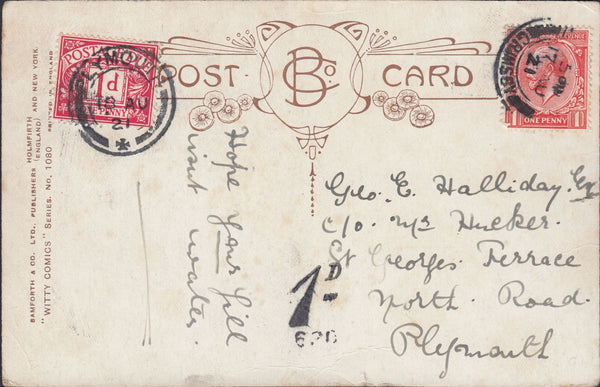 POST CARD
B Co
BAMFORTH & CO., LTD., PUBLISHERS HOLMFIRTH AND NEW YORK.
(ENGLAND)
PRINTED IN ENGLAND
"WITTY COMICS" SERIES. No. 1080
POSTAGE
1d
PLYMOUTH
18 AU
21
GRIMSBY
21
ONE PENNY
1 1
Hope yours fill
with
water.
Geo. E. Halliday. Esq
c/o. Mrs Hucker.
St Georges Terrace
North. Road.
Plymouth
1D
620